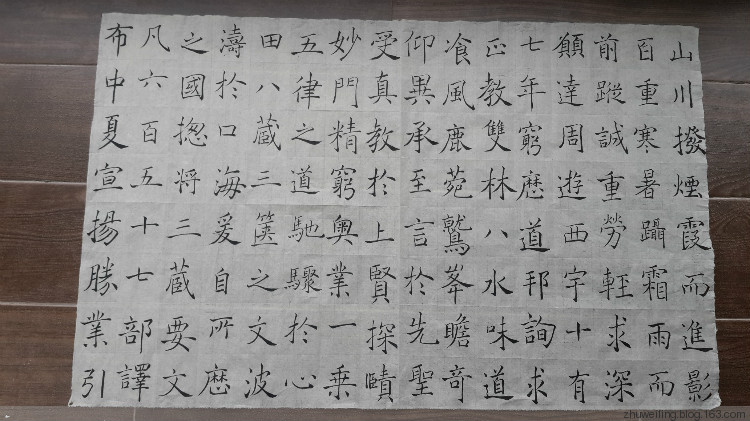 山川撥煙霞而進影
百重寒暑躡霜雨而
前蹤誠重勞輕求深
願達周遊西宇十有
七年窮歷道邦詢求
正教雙林八水味道
飡風鹿菀鷲峯瞻奇
仰異承至言於先聖
受真教於上賢探賾
妙門精窮奧業一乗
五律之道馳驟於心
田八蔵三篋之文波
濤於口海爰自所歷
之國揔将三蔵要文
凡六百五十七部譯
布中夏宣揚勝業引
zhuweifing.blog.163.com